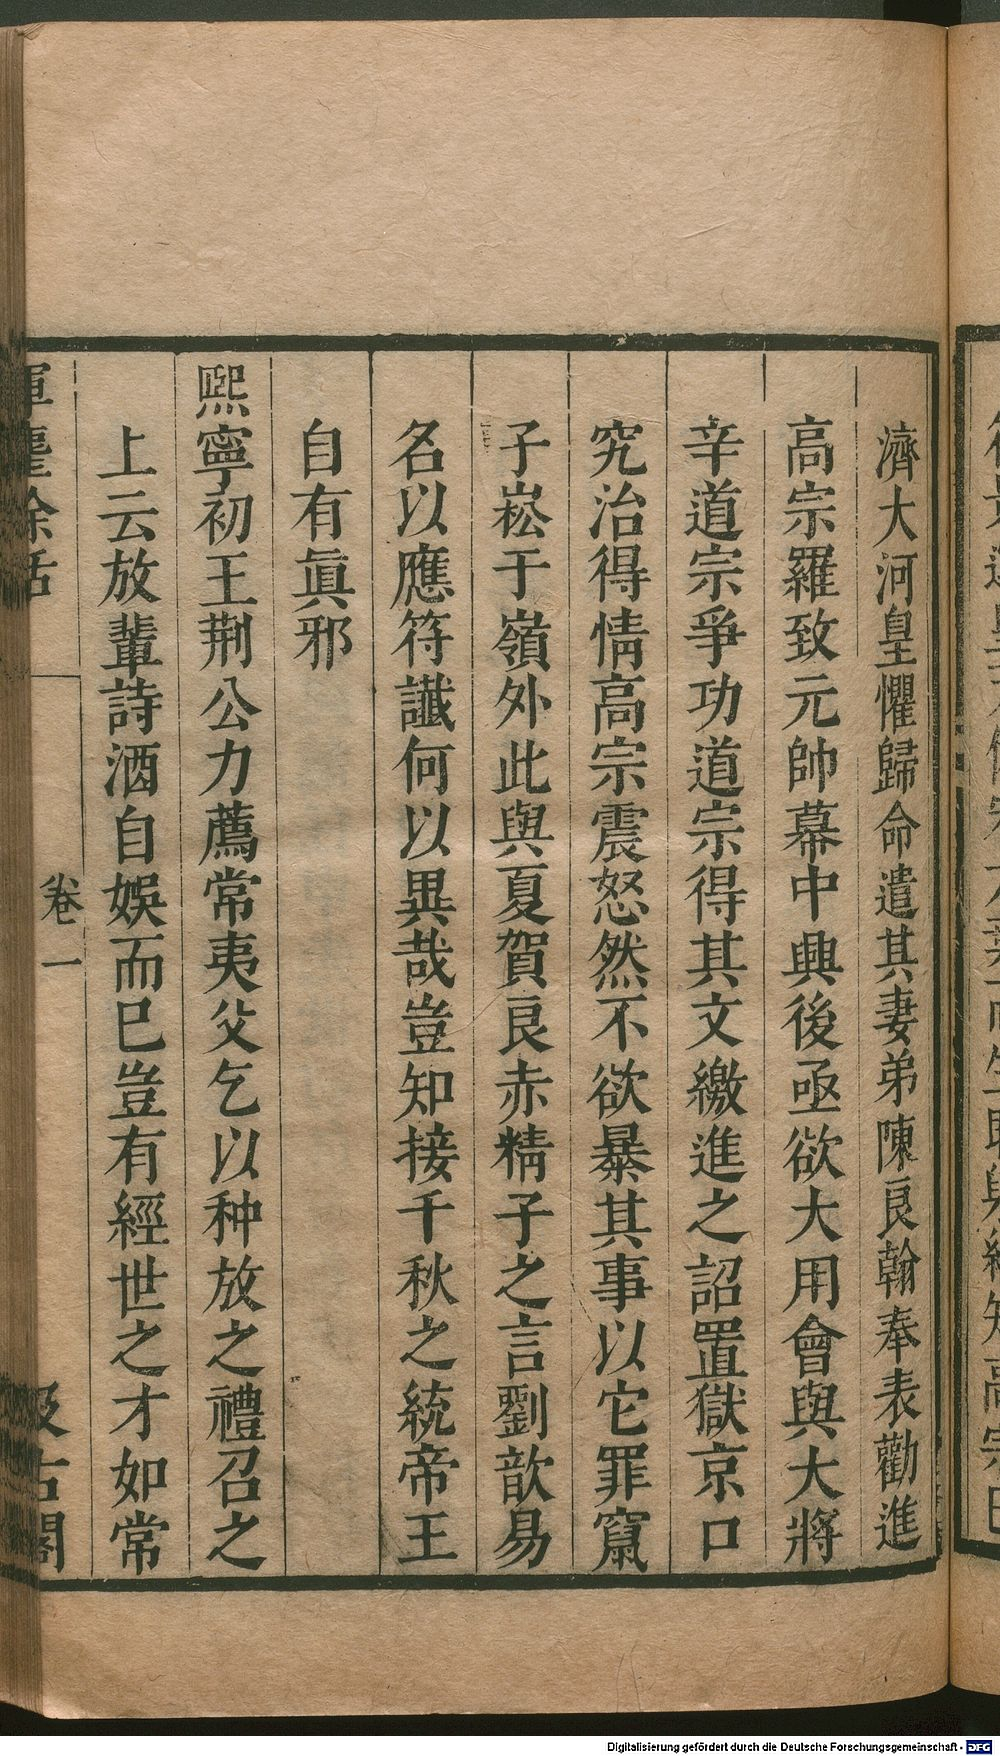 濟大河皇懼歸命遣其妻弟陳良翰奉表勸進
高宗羅致元帥幕中興後亟欲大用會與大將
辛道宗爭功道宗得其文繳進之詔置獄京口
究治得情高宗震怒然不欲暴其事以它罪竄
子崧于嶺外此與夏賀良赤精子之言劉歆易
名以應符讖何以異哉豈知接千秋之統帝王
自有眞邪
熙寧初王荆公力薦常夷父乞以种放之禮召之
上云放輩詩酒自娛而已豈有經世之才如常
揮麈餘話
卷一
汲古閣
Digitalisierung gefördert durch die Deutsche Forschungsgemeinschaft - DFG